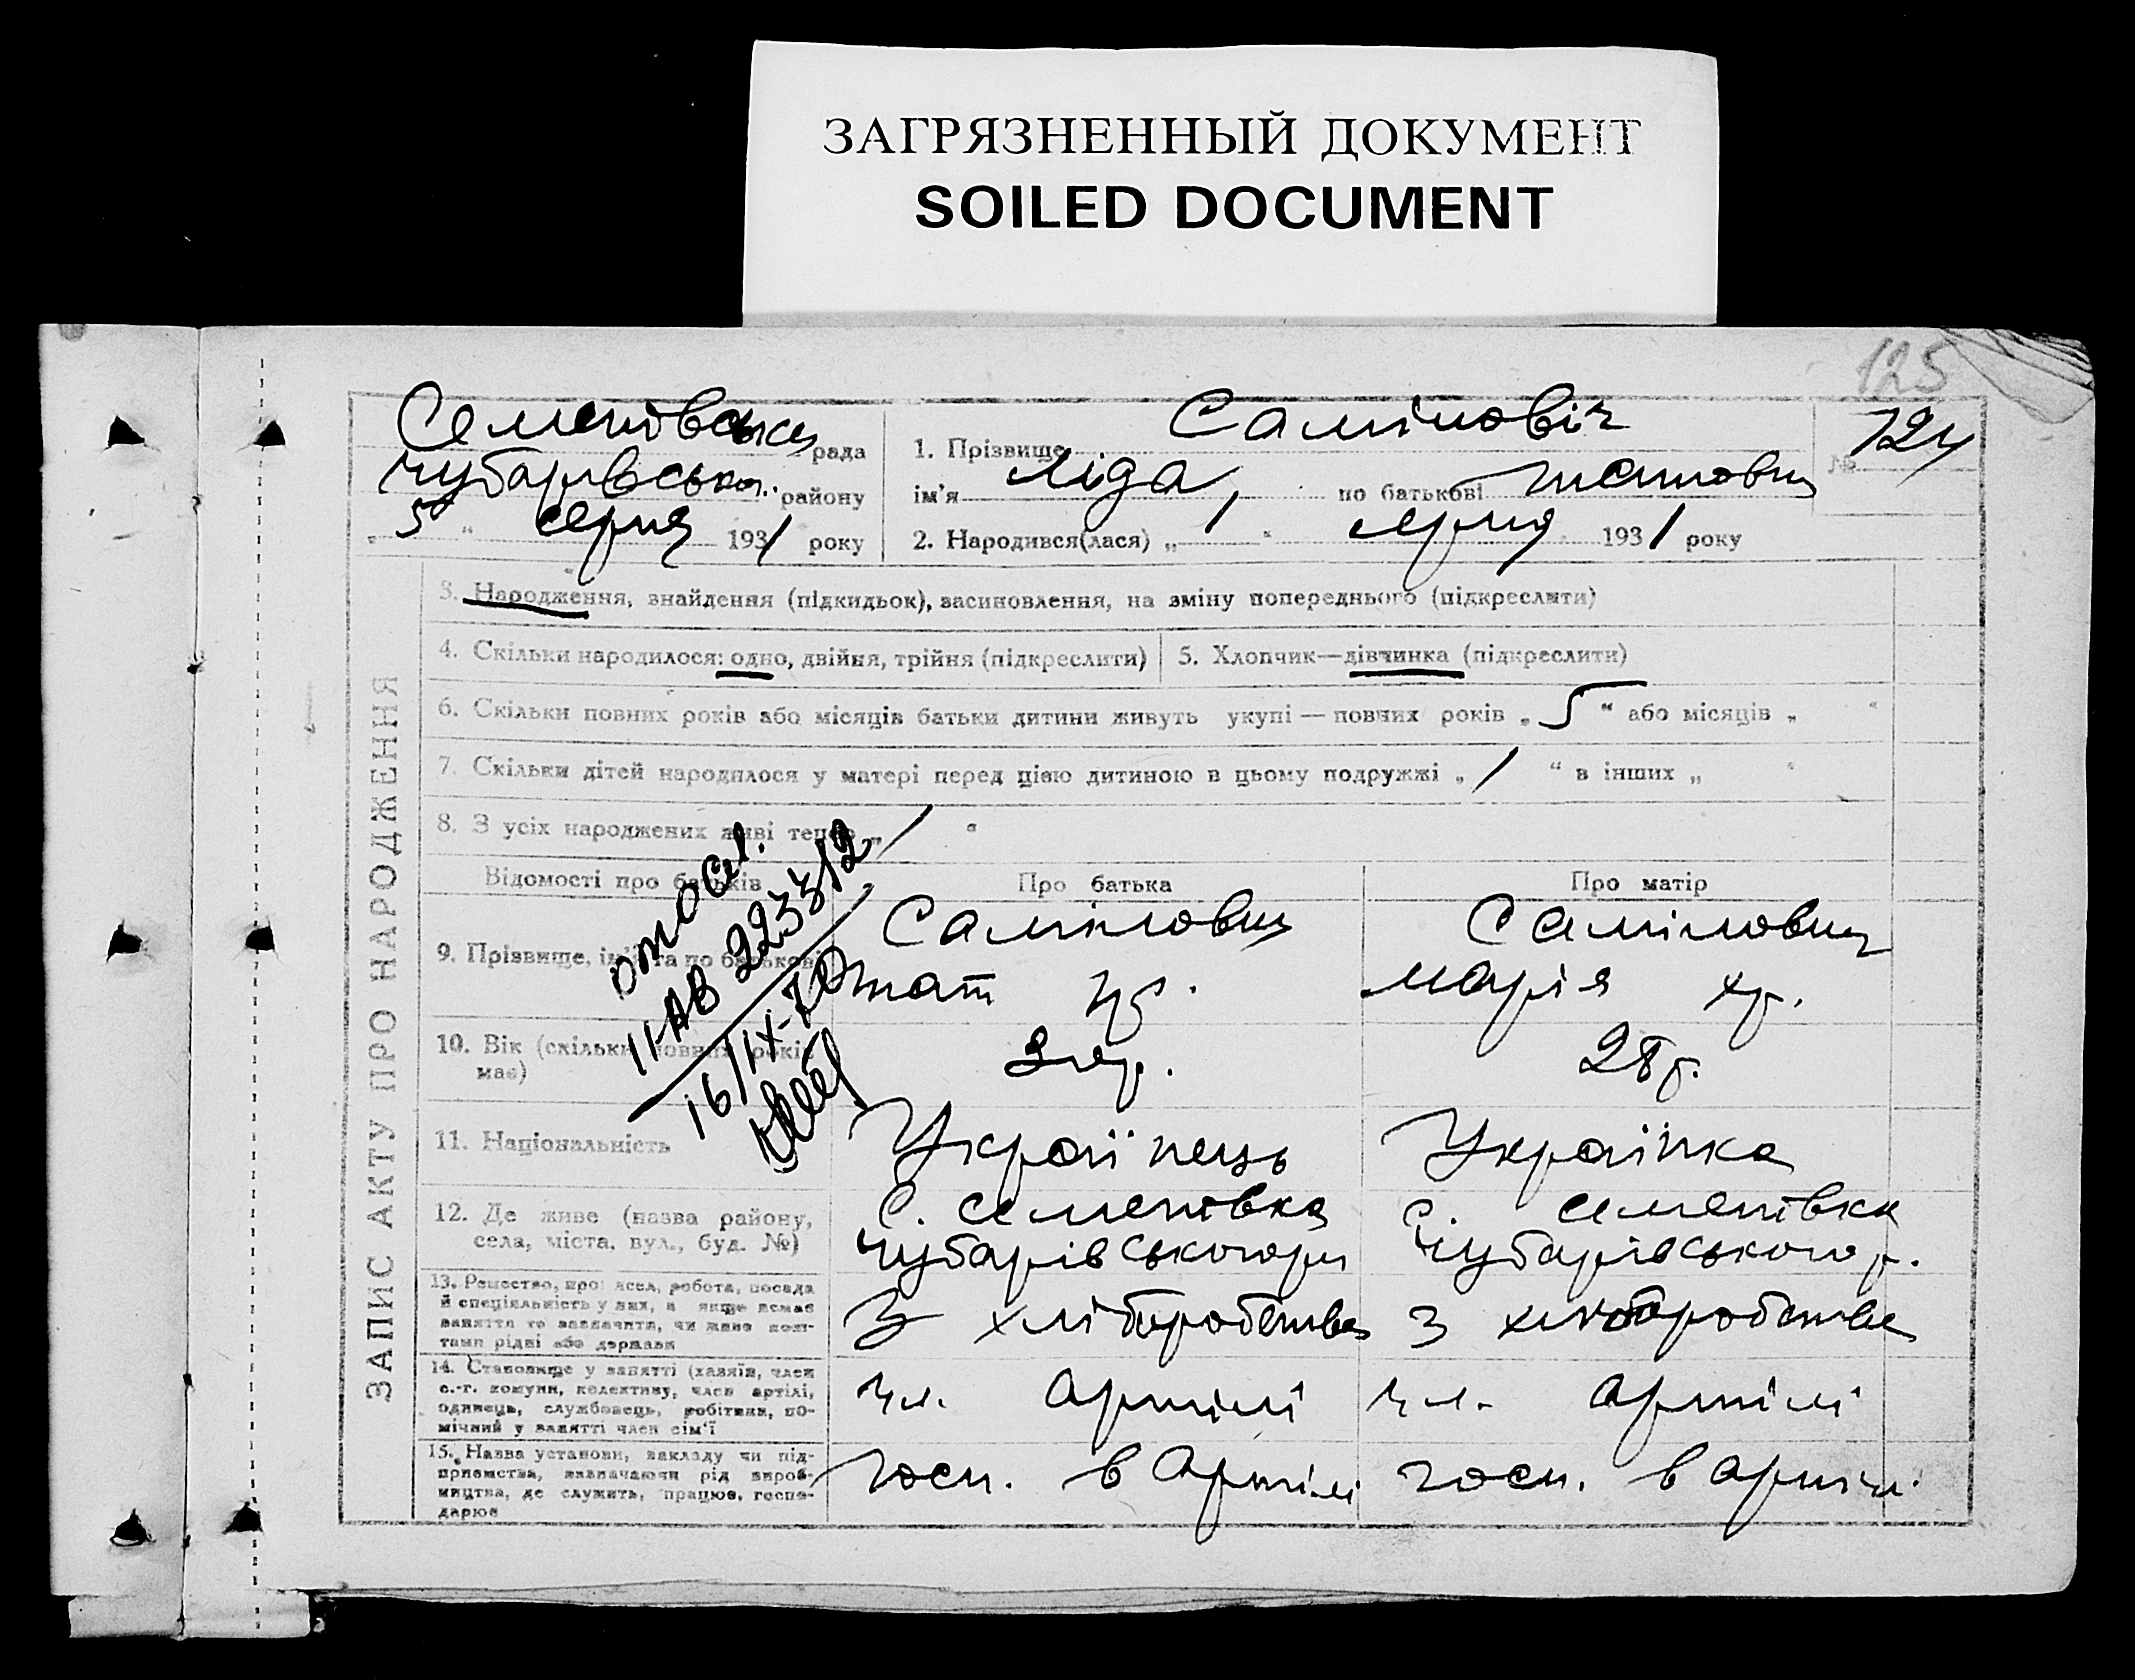 ЗАГРЯЗНЕННЫЙ ДОКУМЕНТ
SOILED DOCUMENT
125
Семенівська рада
Чубарівська району
„ 5 “ серпня 1931 року
1. Прізвище Саміновіч
№ 124
ім'я Ліда, по батькові
2. Народився(лася) „ 1 “ серпня 1931 року
ЗАПИС АКТУ ПРО НАРОДЖЕННЯ
3. Народження, знайдення (підкидьок), засиновлення, на зміну попереднього (підкреслити)
4. Скільки народилося: одно, двійня, трійня (підкреслити)
5. Хлопчик—дівчинка (підкреслити)
6. Скільки повних років або місяців батьки дитини живуть укупі — повних років „ 5 “ або місяців „ “
7. Скільки дітей народилося у матері перед цією дитиною в цьому подружжі „ 1 “ в інших „ “
8. З усіх народжених живі тепер „ 1 “
Відомості про батьків
Про батька
Про матір
9. Прізвище, ім'я та по батькові
Самінович
Самінович
Марія хр.
10. Вік (скільки повних років має)
28 р.
II-АВ 223312
16/IX-70
11. Національність
Українець
Українка
12. Де живе (назва району,
села, міста, вул., буд. №)
с. Семенівка
Чубарівського р
с. Семенівка
Чубарівського р.
13. Ремество, промисел, робота, посада
й спеціяльність у них, а якщо немає
заняття то зазначити, чи живе кош-
тами рідні або держави
З хліборобства
З хліборобства
14. Становище у занятті (хазяїн, член
с.-г. комуни, колективу, член артілі,
одинець, службовець, робітник, по-
мічний у занятті член сім'ї
чл. артілі
чл. артілі
15. Назва установи, закладу чи під-
приємства, визначаючи рід вироб-
ництва, де служить, працює, госпо-
дарює
госп. в артілі
госп. в артілі